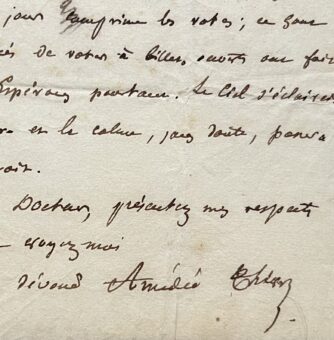 jours comprime les votes ; ce sont
és de voter à billets ouverts ont fait
Espérons pourtant. Le Ciel s'éclaircira
et le calme, sans doute, pourra
oir.
Docteur, présentez mes respects
croyez moi
dévoué Amédée Thierry